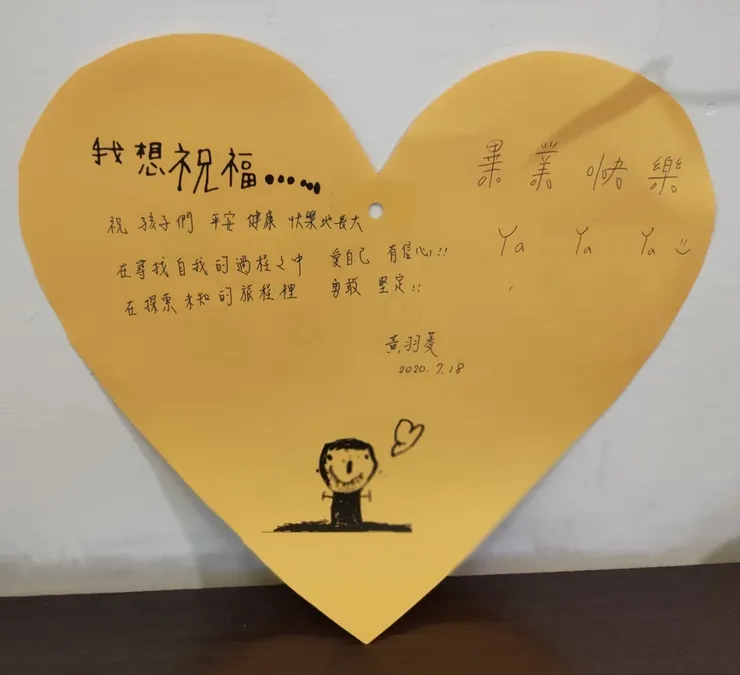 我想祝福......
祝 孩子們 平安 健康 快樂地長大
在尋找自我的過程之中 愛自己 有信心!!
在探索未知的旅程裡 勇敢 堅定!!
黃羽菱
2020.7.18
畢業快樂
Ya Ya Ya